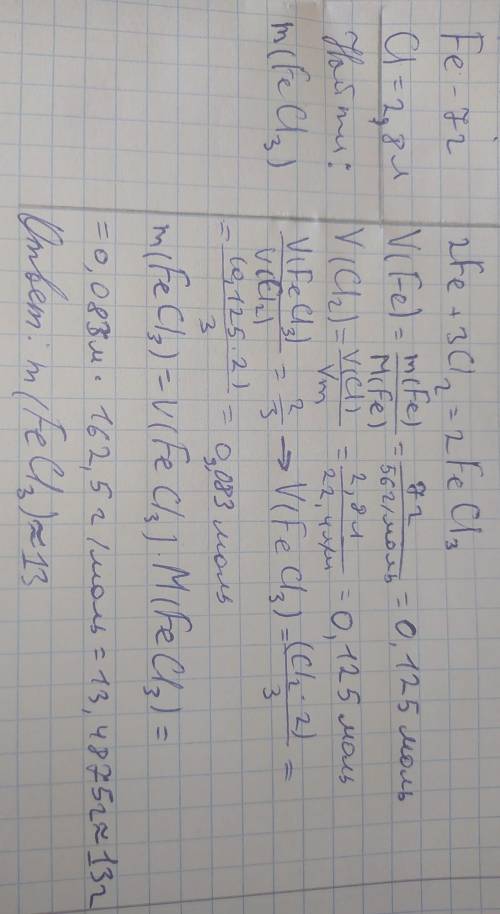 Fe - 7г
Cl = 2,8л
Найти:
m(FeCl3)
2Fe + 3Cl2 = 2FeCl3
V(Fe) = m(Fe)/M(Fe) = 7г/56г/моль = 0,125 моль
V(Cl2) = V(Cl)/Vm = 2,8л/22,4л/м = 0,125 моль
V(FeCl3)/V(Cl2) = 2/3 → V(FeCl3) = (Cl2·2)/3 =
= (0,125·2)/3 = 0,083 моль
m(FeCl3) = V(FeCl3)·M(FeCl3) =
= 0,083м · 162,5г/моль = 13,4875г ≈ 13г
Ответ: m(FeCl3) ≈ 13